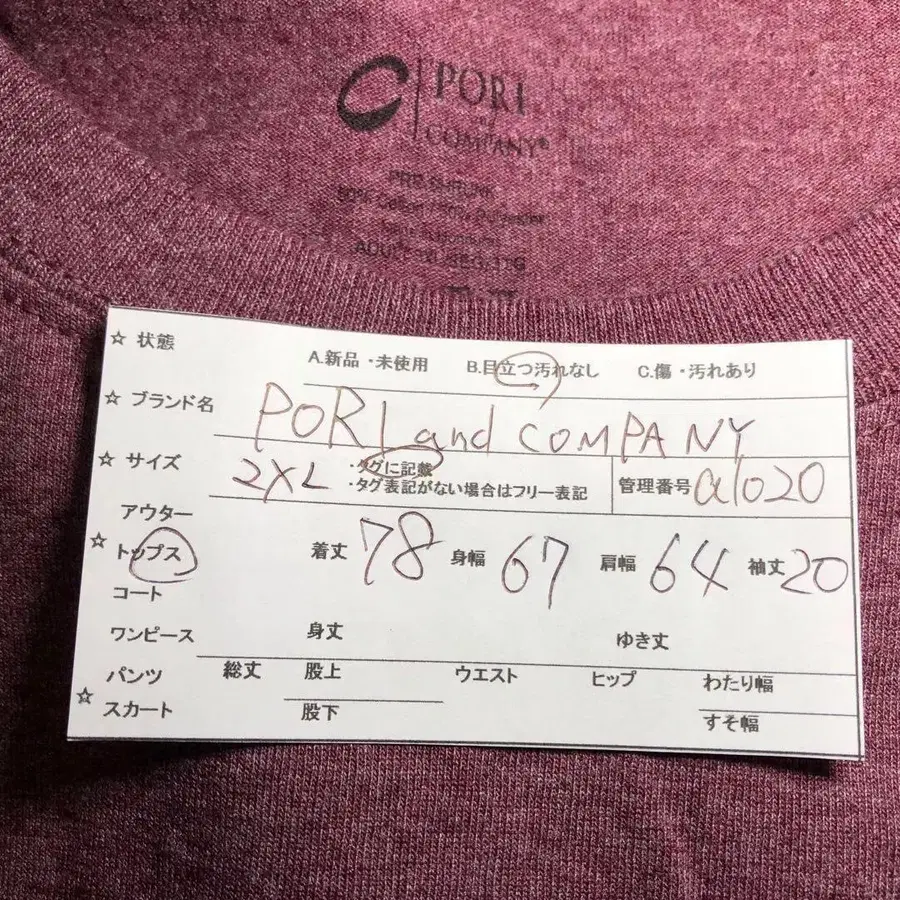 PORT
COMPANY®
PRE-SHRUNK
ADULT
☆ 状態
A.新品・未使用 B.目立つ汚れなし C.傷・汚れあり
☆ ブランド名
PORT and COMPANY
☆ サイズ
2XL
・タグに記載
・タグ表記がない場合はフリー表記
管理番号 a1020
アウター
☆ トップス 着丈 78 身幅 67 肩幅 64 袖丈 20
コート
ワンピース 身丈 ゆき丈
パンツ 総丈 股上 ウエスト ヒップ わたり幅
☆ スカート 股下 すそ幅